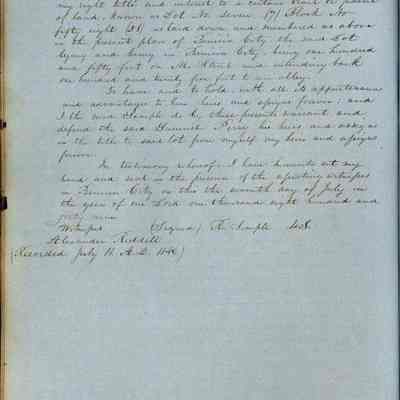 my right title and interest to a certain tract or parcel
of land, known as Lot No. Seven (7) Block No.
fifty eight (58) as laid down and numbered as above
in the present plan of Benicia City, the said Lot
lying and being in Benicia City, being one hundred
and fifty feet on Street and extending back
one hundred and twenty five feet to an alley.
To have and to hold, with all its appurtenances
and advantages to him, heirs and assigns forever; and
I the said Semple do by these presents warrant and
defend the said Perry his heirs and assigns
in the title to said lot from myself my heirs and assigns
forever.
In testimony whereof I have hereunto set my
hand and seal in the presence of the attesting witness
in Benicia City on this the seventh day of July in
the year of our Lord one thousand eight hundred and
forty nine
Witness (Signed) R. Semple
Alexander Riddell
(Recorded July 11 A.D. 1849)